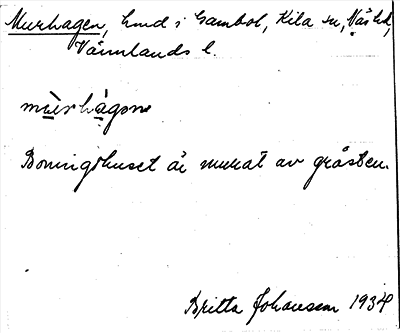 Murhagen, hmd i Gambol, Kila sn, Näs hd,
Värmlands l.
mùrhàgɐn
Boningshuset är murat av gråsten.
Britta Johansson 1934